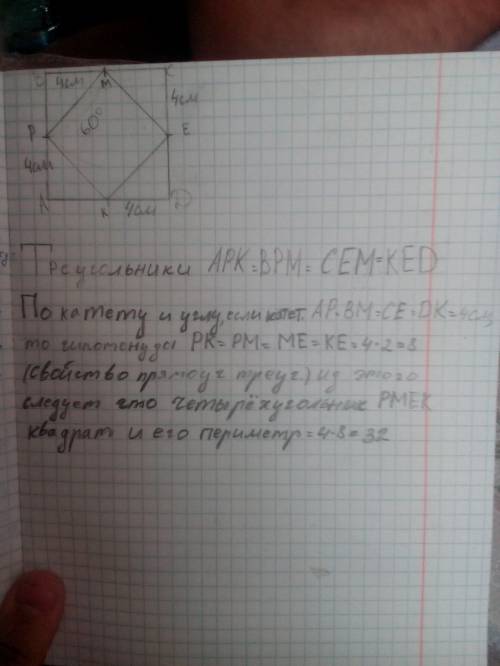 4см
М
4см
P
60°
E
4см
A
K
4см
D
Треугольники APK=BPM=CEM=KED
По катету и углу, если катет. AP=BM=CE=DK=4см,
то гипотонузы PK=PM=ME=KE=4·2=8
(свойство прямоуг треуг.) из этого
следует что четырёхугольник PMEK
квадрат и его периметр=4·8=32